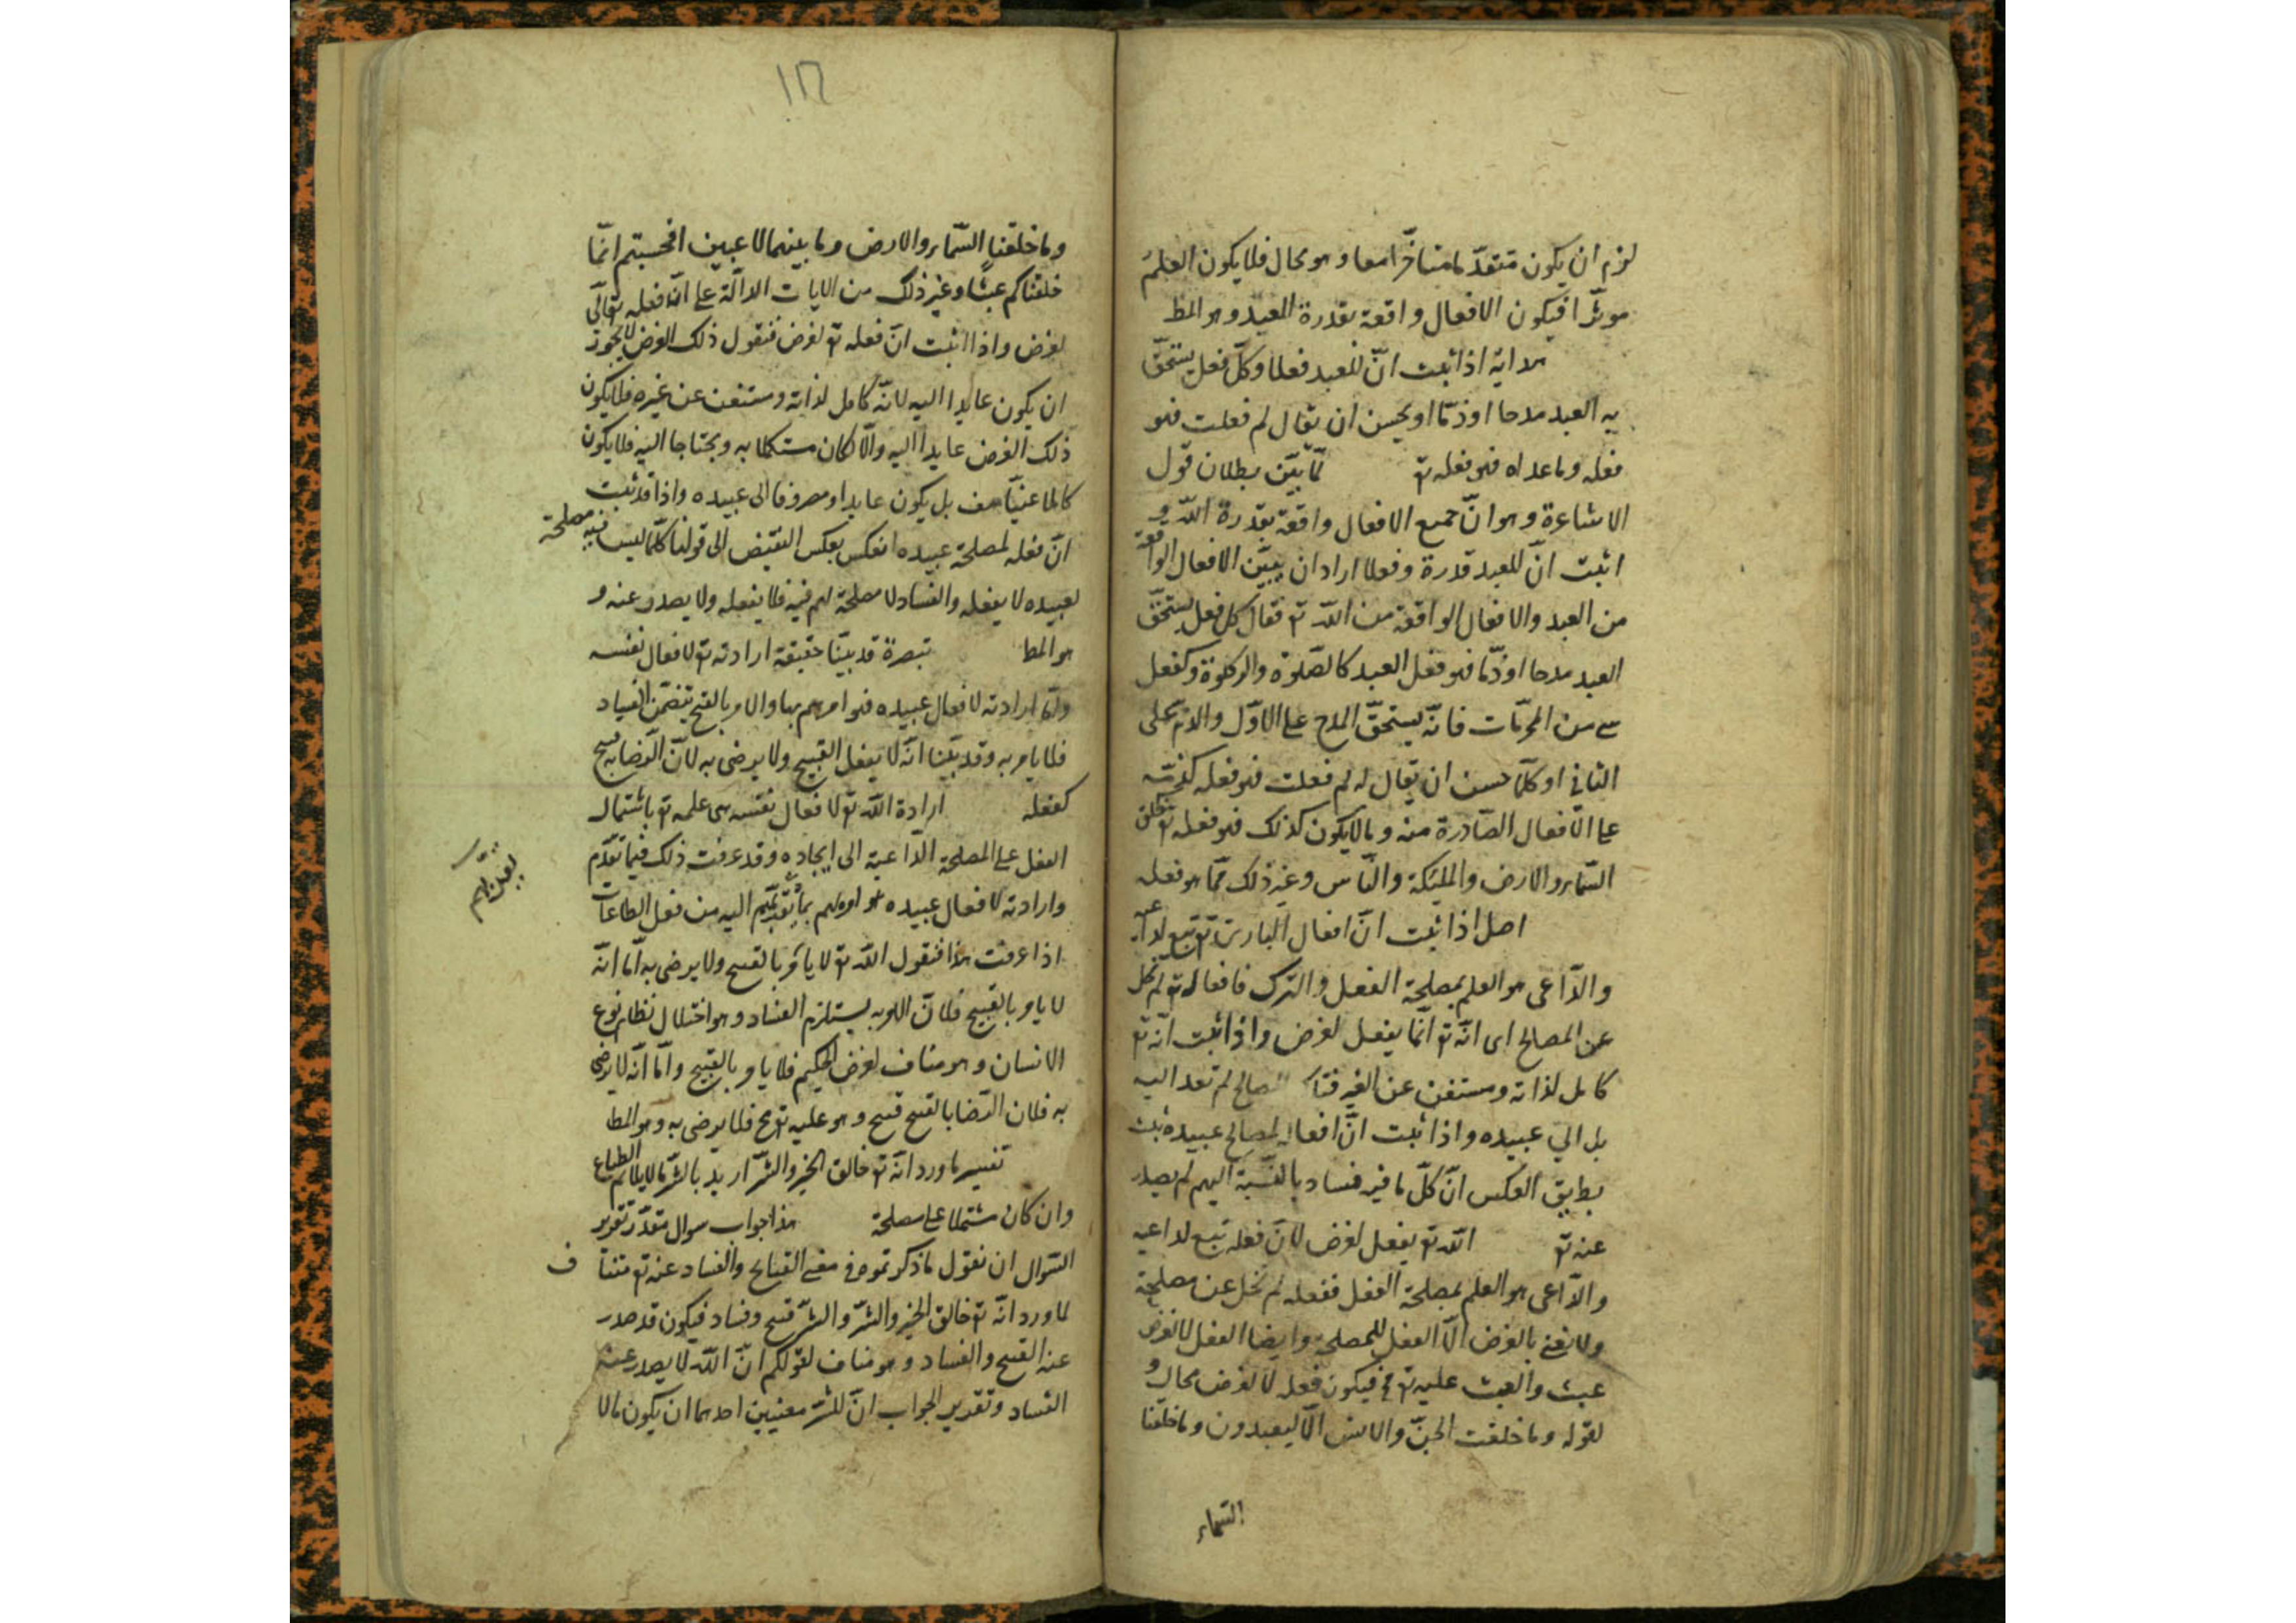 لزم ان يكون متقدّما متأخّرا معا و هو محال فلا يكون العلم
موثّرا فيكون الافعال واقعة بقدرة العبد و هو المط
هداية اذا ثبت انّ للعبد فعلا و كلّ فعل يستحقّ
به العبد مدحا او ذمّا او يحسن ان يقال لم فعلت فهو
فعله و ما عداه فهو فعله تع لمّا بيّن بطلان قول
الاشاعرة و هو انّ جميع الافعال واقعة بقدرة اللّه و
اثبت انّ للعبد قدرة و فعلا اراد ان يبيّن الافعال الواقعة
من العبد و الافعال الواقعة من اللّه تع فقال كل فعل يستحقّ
العبد مدحا او ذمّا فهو فعل العبد كالصّلوة و الزكوة و كفعل
شے من المحرّمات فانّه يستحقّ المدح على الاوّل و الذم على
الثانى او كلّما حسن ان يقال له لم فعلت فهو فعله كذمّه
على الافعال الصّادرة منه و ما لا يكون كذلك فهو فعله تع كخلق
السّماء و الارض و الملئكة و النّاس و غير ذلك ممّا هو فعله
اصل اذا ثبت انّ افعال البارى تع تتبع لداعيه
و الدّاعى هو العلم بمصلحة الفعل و الترك فافعاله تع لم تخل
عن المصالح اى انّه تع انّما يفعل لغرض و اذا ثبت انّه تع
كامل لذاته و مستغن عن الغير فتلك المصالح لم تعد اليه
بل الى عبيده و اذا ثبت انّ افعاله لمصالح عبيده ثبت
بطريق العكس انّ كلّ ما فيه فساد بالنّسبة اليهم لم يصدر
عنه تع اللّه تع يفعل لغرض لانّ فعله تبع لداعيه
و الدّاعى هو العلم بمصلحة الفعل ففعله لم تخل عن مصلحة
و لا نعنى بالغرض الّا الفعل للمصلحة و ايضا الفعل لا لغرض
عبث و العبث عليه تع مح فيكون فعله لا لغرض محال و
لقوله و ما خلقت الجنّ و الانس الّا ليعبدون و ما خلقنا
السّماء
١١٦
و ما خلقنا السّماء و الارض و ما بينهما لاعبين افحسبتم انّما
خلقناكم عبثًا و غير ذلك من الايات الدالّة على انّ فعله تعالى
لغرض و اذا اثبت انّ فعله تع لغرض فنقول ذلك الغرض لا يجوز
ان يكون عايدا اليه لانّه كامل لذاته و مستغن عن غيره فلا يكون
ذلك الغرض عايدا اليه و الّا لكان مستكملا به و محتاجا اليه فلا يكون
كاملا غنيّا هف بل يكون عايدا و مصروفا الى عبيده و اذا قد ثبت
انّ فعله لمصلحة عبيده انعكس بعكس النقيض الى قولنا كلّما ليس فيه مصلحة
لعبيده لا يفعله و الفساد لا مصلحة لهم فيه فلا يفعله و لا يصدر عنه و
هو المط تبصرة قد بيّنا حقيقة ارادته تع لافعال نفسه
و امّا ارادته لافعال عبيده فهو امرهم بها و الامر بالقبح يتضمّن الفساد
فلا يامر به و قد بيّنا انّه لا يفعل القبيح و لا يرضى به لانّ الرّضا به قبيح
كفعله ارادة اللّه تع لافعال نفسه هى علمه تع باشتمال
الفعل على المصلحة الدّاعية الى ايجاده و قد عرفت ذلك فيما تقدّم
و ارادته لافعال عبيده هو امرهم بما يقرّبهم اليه من فعل الطاعات
يقرّبهم
اذا عرفت هذا فنقول اللّه تع لا يأمر بالقبيح و لا يرضى به امّا انّه
لا يامر بالقبيح فلانّ الامر به يستلزم الفساد و هو اختلال نظام نوع
الانسان و هو مناف لغرض الحكيم فلا يامر بالقبيح و امّا انّه لا يرضى
به فلان الرّضا بالقبيح قبيح و هو عليه تع مح فلا يرضى به و هو المط
تفسير ما ورد انّه تع خالق الخير و الشّر اريد بالشّر ما لا يلائم الطباع
و ان كان مشتملا على مصلحة هذا جواب سوال مقدّر تقرير
السّوال ان نقول ما ذكرتموه فى نفى القبايح و الفساد عنه تع مناف
لما ورد انّه تع خالق الخير و الشّر و الشّر قبيح و فساد فيكون قد صدر
عنه القبيح و الفساد و هو مناف لقولكم انّ اللّه لا يصدر عنه
الفساد و تقرير الجواب انّ للشّر معنيين احدهما ان يكون ما لا